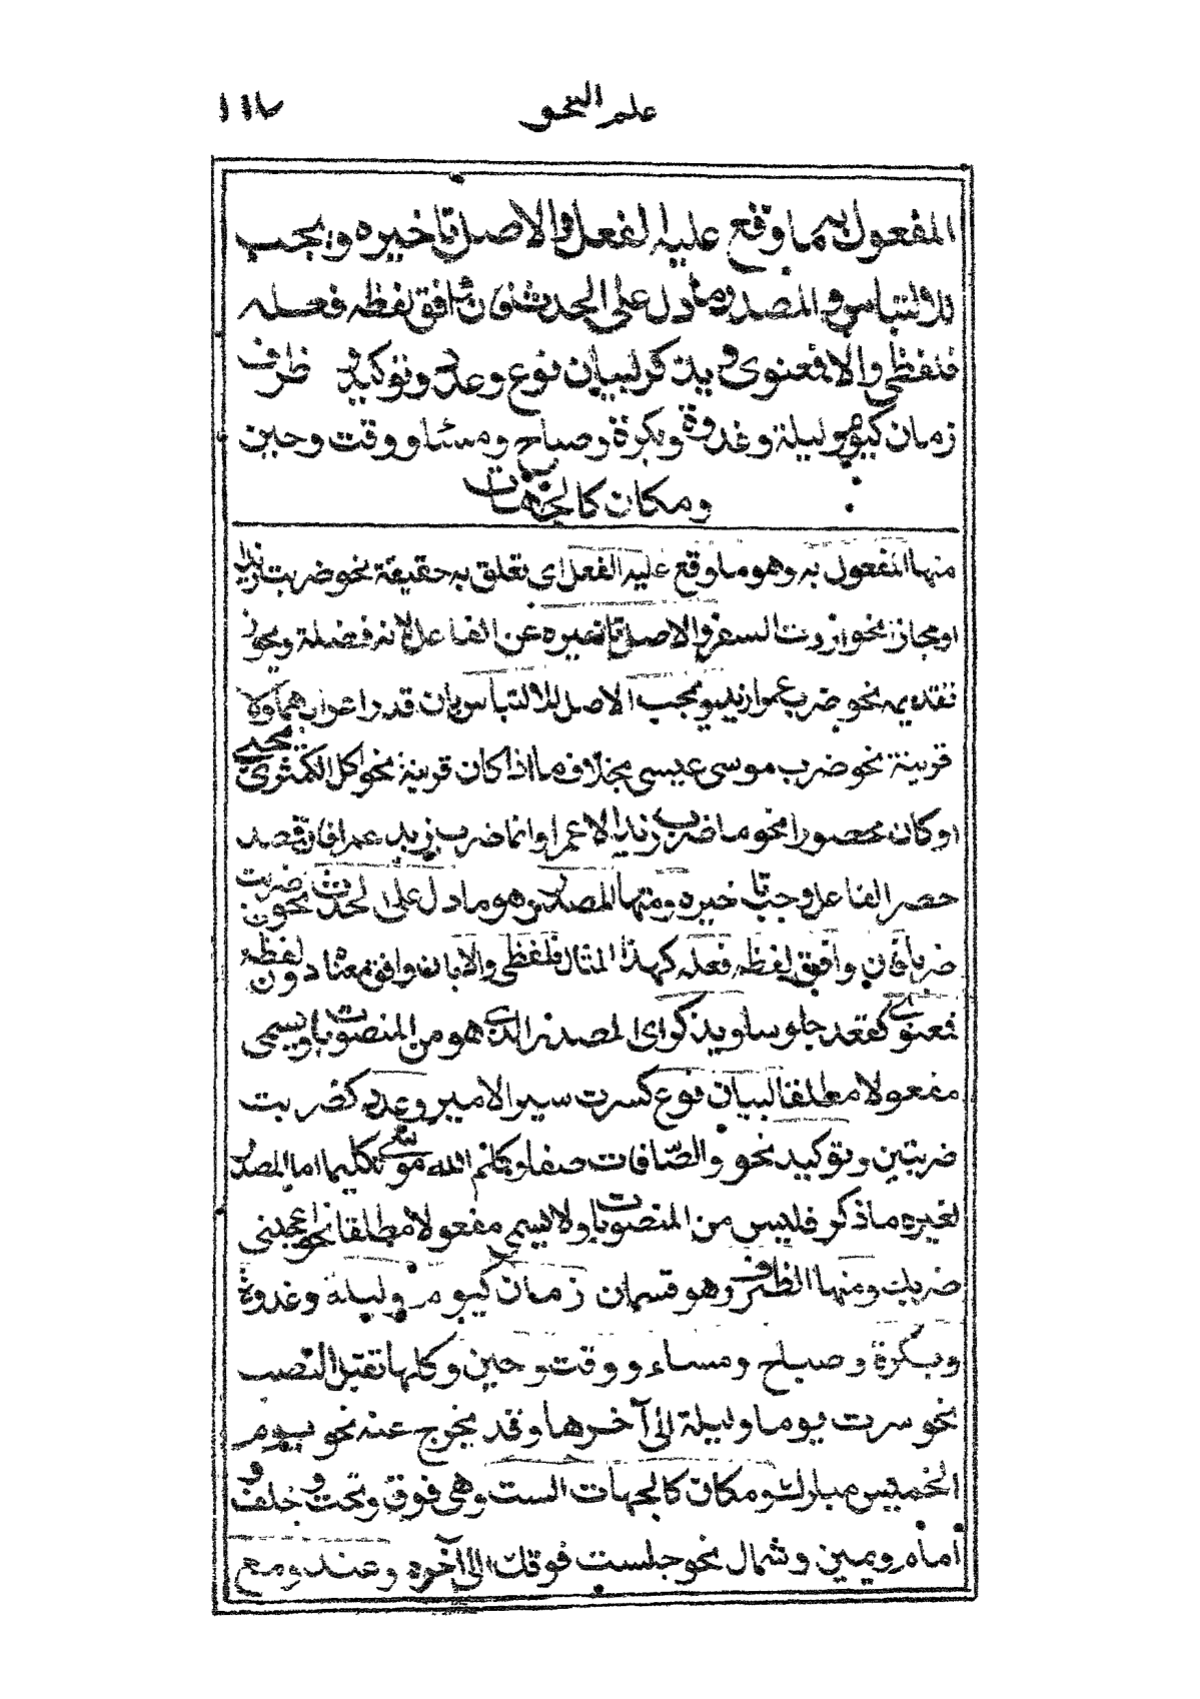 علم النحو ١١٧
المفعول به ما وقع عليه الفعل والاصل تاخيره ويجب
للالتباس والمصدر ما دل على الحدث فان وافق لفظه فعله
فلفظي والا فمعنوي ويذكر لبيان نوع وعدد وتوكيد ظرف
زمان كيوم وليلة وغدوة وبكرة وصباح ومساء ووقت وحين
ومكان كالجهات
منها المفعول به وهو ما وقع عليه الفعل اي تعلق به حقيقة نحو ضربت زيدا
او مجازا نحو اردت السفر والاصل تاخيره عن الفاعل لانه فضلة ويجوز
تقديمه نحو ضرب عمرا زيد ويجب الاصل للالتباس بان قدر اعرابهما ولا
قرينة نحو ضرب موسى عيسى بخلاف ما اذا كان قرينة نحو اكل الكمثرى يحيى
او كان محصورا نحو ما ضرب زيد الا عمرا وانما ضرب زيد عمرا فان قصد
حصر الفاعل وجب تاخيره ومنها المصدر هو ما دل على الحدث نحو ضربت
ضربا فان وافق لفظه فعله كهذا المثال فلفظي والا بان وافق معناه دون لفظه
فمعنوي كقعد جلوسا ويذكر اي المصدر الذي هو من المنصوبات ويسمى
مفعولا مطلقا لبيان نوع كسرت سير الامير وعدد كضربت
ضربتين وتوكيد نحو والصافات صفا وكلم الله موسى تكليما اما المصدر
لغير ما ذكر فليس من المنصوبات ولا يسمى مفعولا مطلقا نحو اعجبني
ضربك ومنها الظرف وهو قسمان زمان كيوم وليلة وغدوة
وبكرة وصباح ومساء ووقت وحين وكلها تقبل النصب
نحو سرت يوما وليلة الى آخرها وقد يخرج عنه نحو يوم
الخميس مبارك ومكان كالجهات الست وهي فوق وتحت وخلف
وامام ويمين وشمال نحو جلست فوقك الى آخره وعند ومع